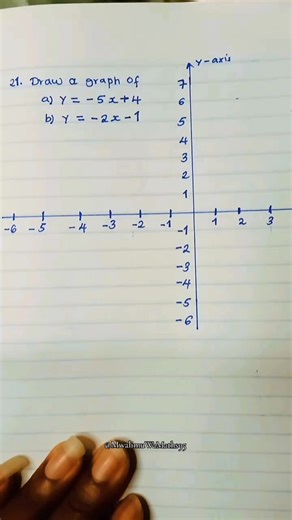 21. Draw a graph of
a) y = -5x+4
b) y = -2x-1
y-axis
7
6
5
4
3
2
1
-6 -5 -4 -3 -2 -1 1 2 3
-1
-2
-3
-4
-5
-6